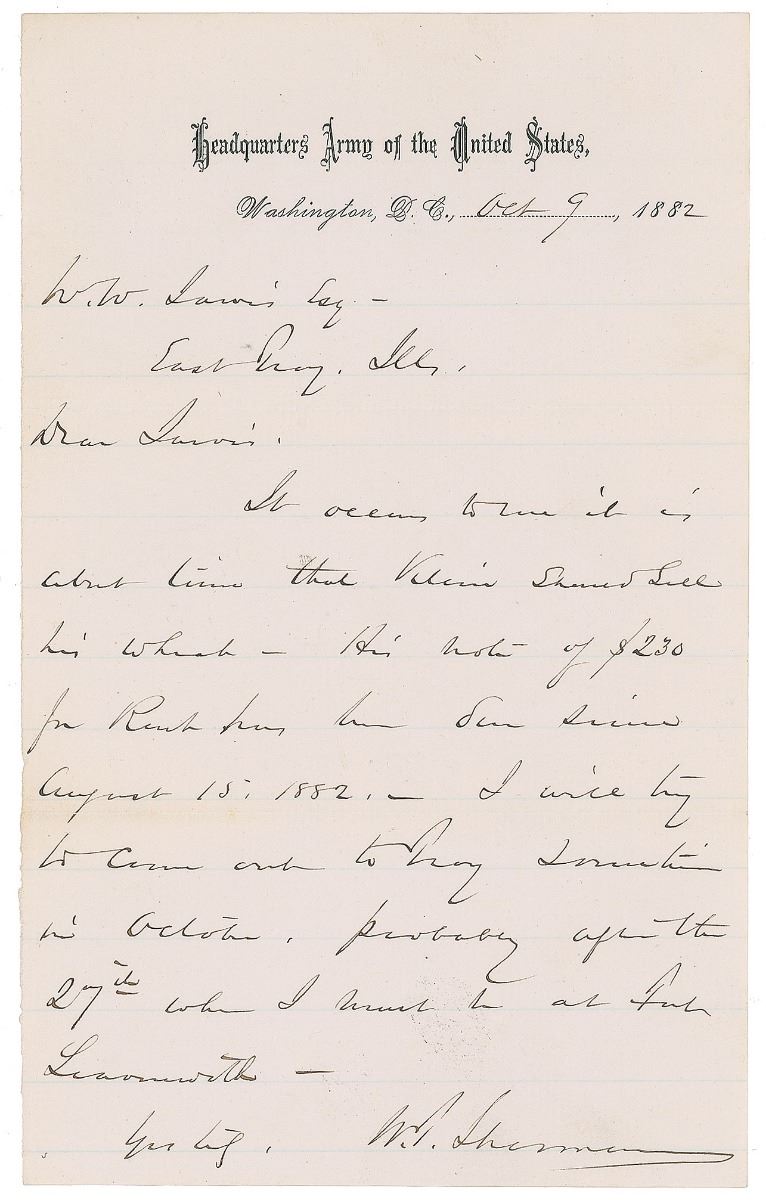 Headquarters Army of the United States,
Washington, D. C., Oct 9, 1882
W. W. Jarvis Esq –
East Troy. Ills.
Dear Jarvis.
It occurs to me it is
about time that should Sell
his wheat – His note of $230
for Rent has been due since
August 15, 1882. – I will try
to come out to Troy sometime
in October, probably after the
27th when I must be at Fort
Leavenworth –
Yrs try. W. T. Sherman